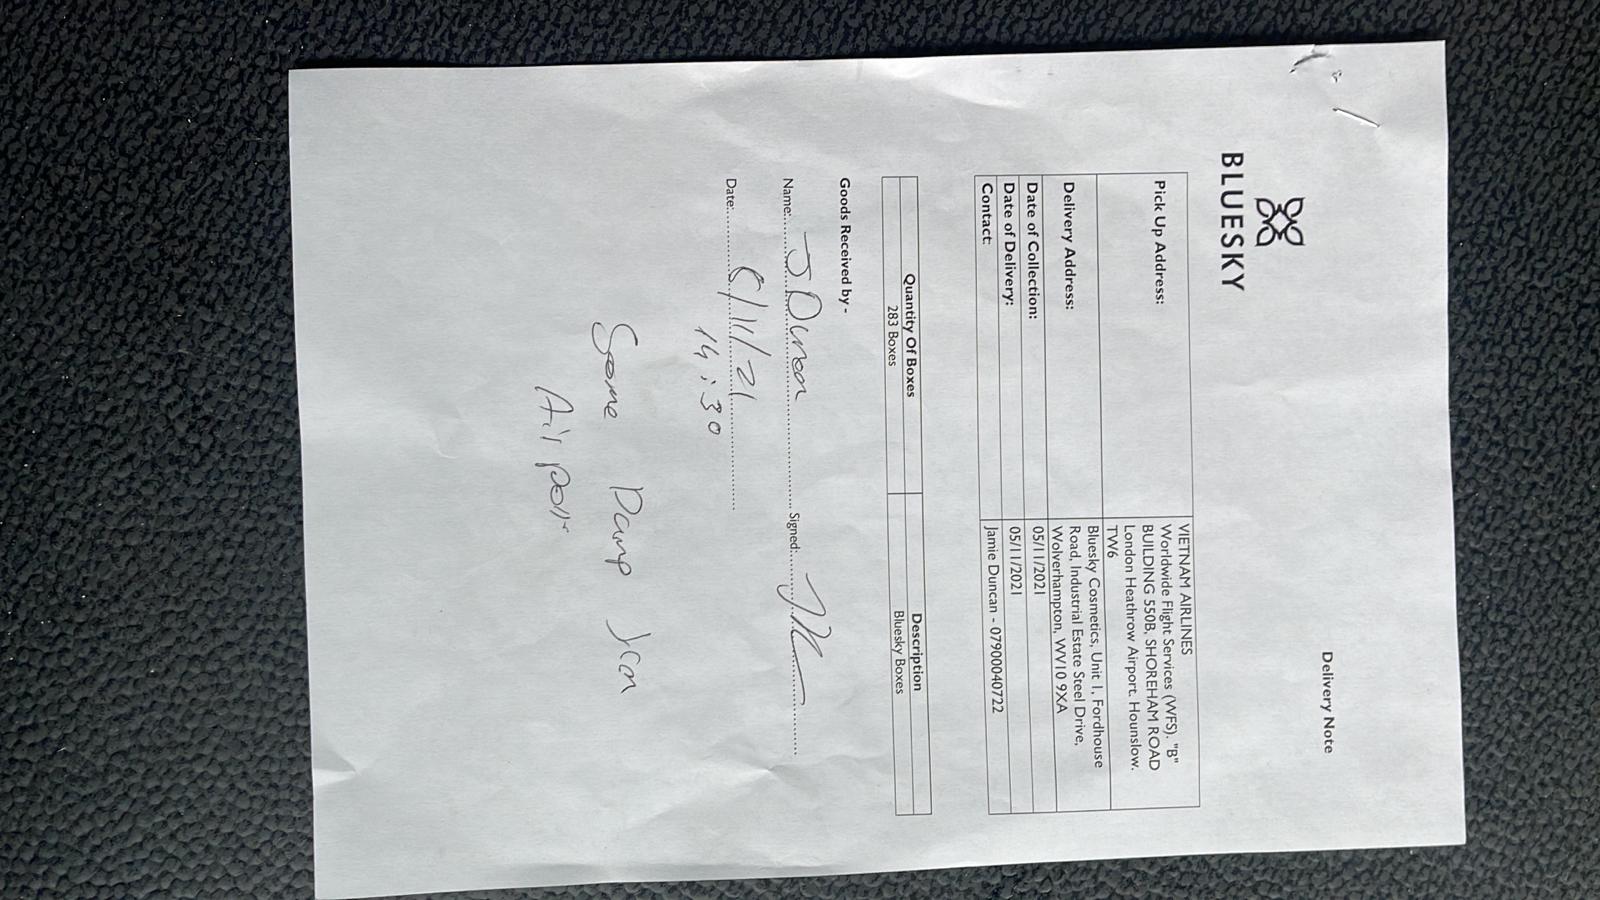 Delivery Note
BLUESKY
Pick Up Address:
VIETNAM AIRLINES
Worldwide Flight Services (WFS). "B"
BUILDING 550B, SHOREHAM ROAD
London Heathrow Airport. Hounslow.
TW6
Delivery Address:
Bluesky Cosmetics, Unit 1, Fordhouse
Road, Industrial Estate Steel Drive,
Wolverhampton, WV10 9XA
Date of Collection: 05/11/2021
Date of Delivery: 05/11/2021
Contact: Jamie Duncan - 07900040722
Quantity Of Boxes Description
283 Boxes Bluesky Boxes
Goods Received by -
Name: J Duncan Signed:
Date: 6/11/21
14:30
Some Damp from
Airport